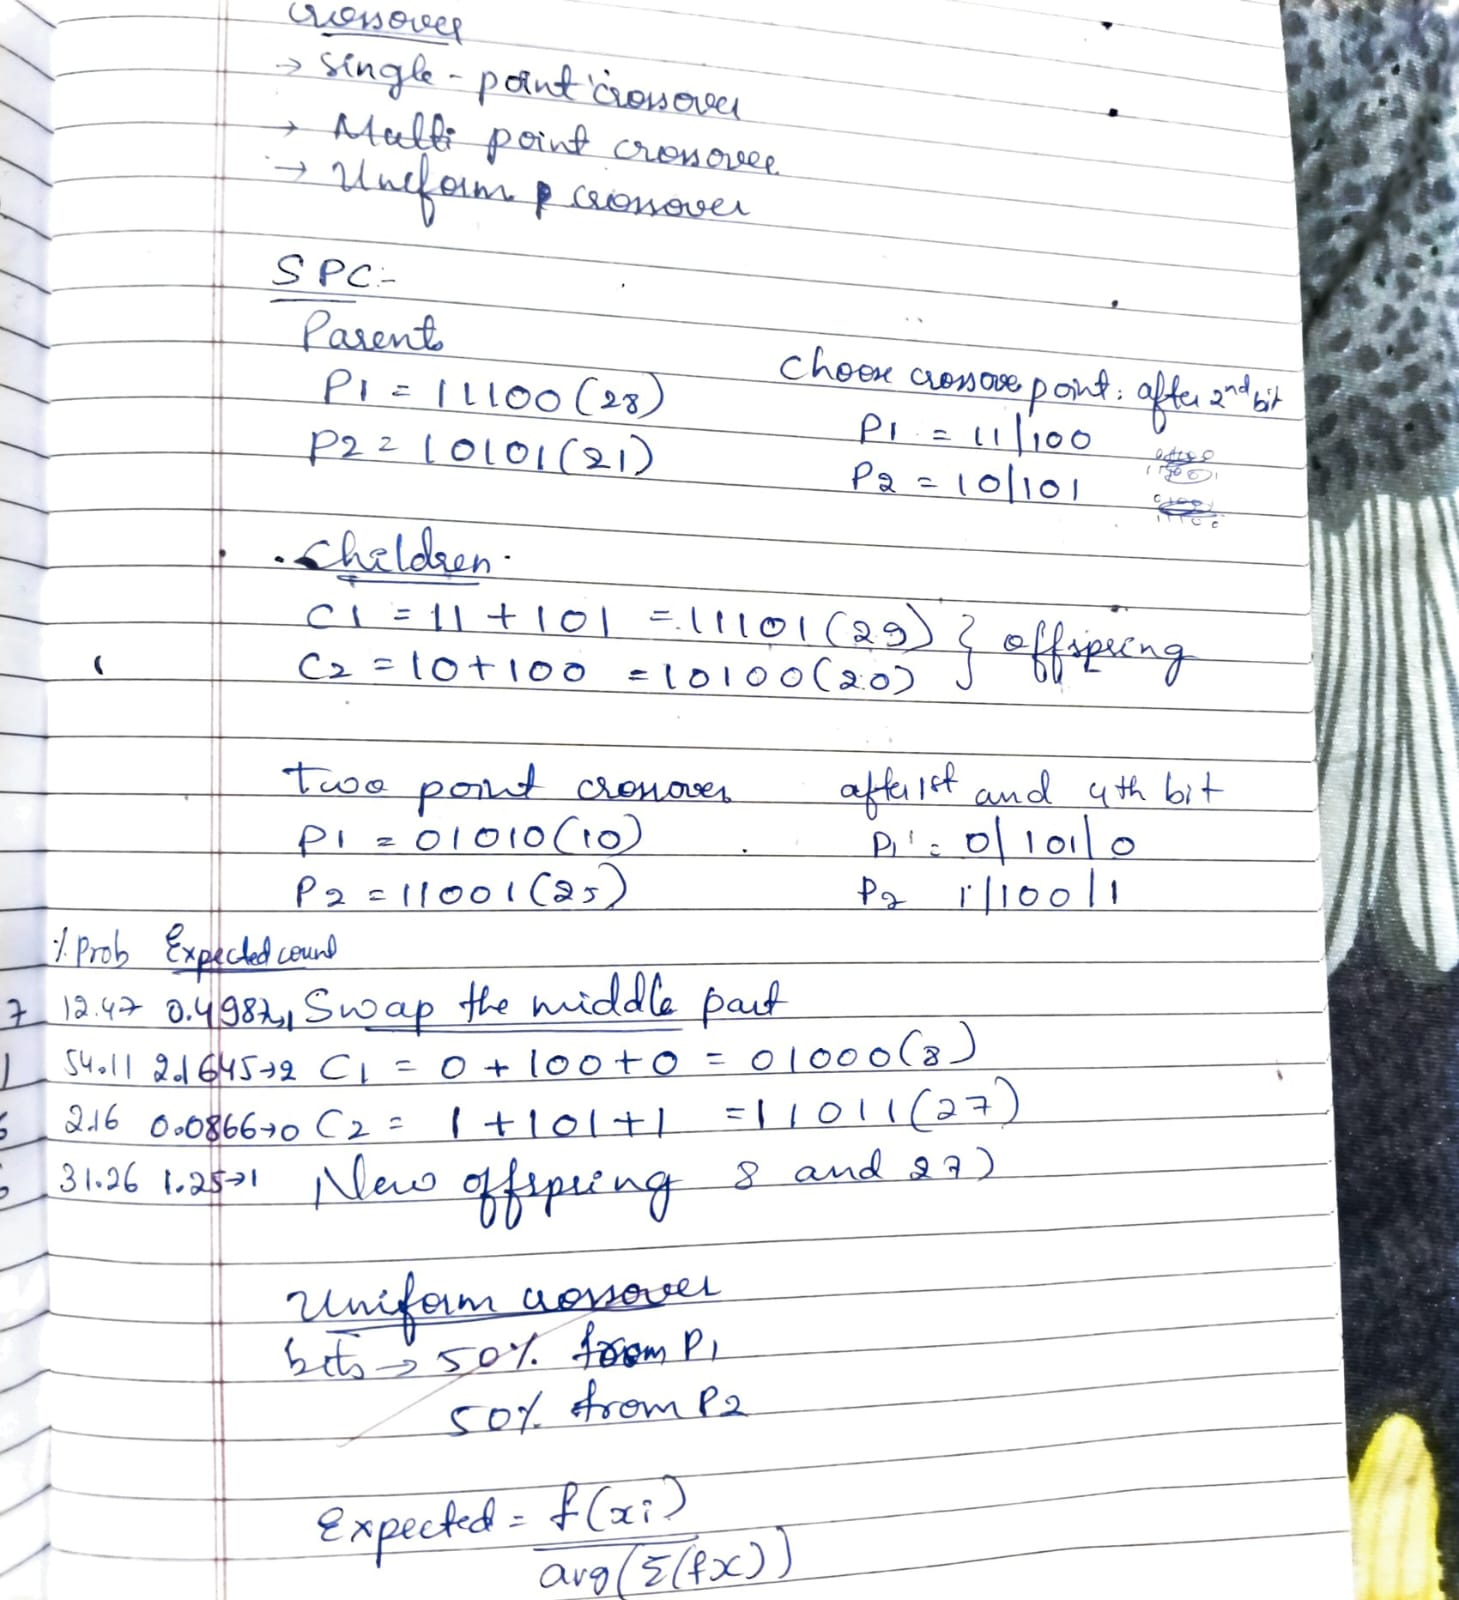 Crossover
→ single-point crossover
→ Multi point crossover
→ Uniform crossover
SPC:-
Parents
P1 = 11100 (28)
P2 = 10101 (21)
Choose crossove point: after 2nd bit
P1 = 11/100
P2 = 10/101
Children
C1 = 11 + 101 = 11101 (29) } offspring
C2 = 10 + 100 = 10100 (20)
Two point crossover after 1st and 4th bit
P1 = 01010 (10) P1 = 0/101/0
P2 = 11001 (25) P2 1/100/1
% Prob Expected count
7 12.47 0.4987 Swap the middle part
54.11 2.1645→2 C1 = 0 + 100 + 0 = 01000 (8)
2.16 0.0866→0 C2 = 1 + 101 + 1 = 11011 (27)
31.26 1.25→1 New offspring 8 and 27)
Uniform crossover
bits → 50% from P1
50% from P2
Expected = f(xi)
avg(Σ(fx))